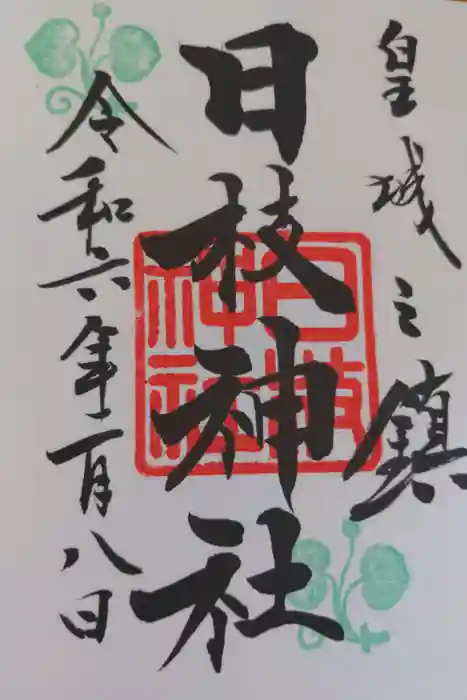 皇城之鎮
日枝神社
令和六年二月八日
日枝神社